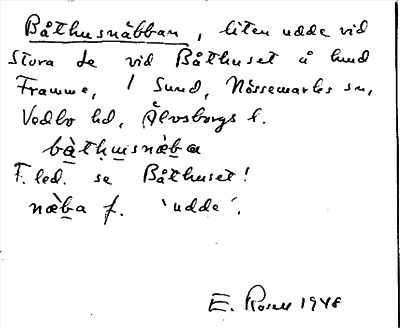 Båthusnäbban, liten udde vid
Stora Le vid Båthuset å lund
Framme, 1 Sund, Nössemarks sn,
Vedbo hd, Älvsborgs l.
båthusnæba
F. led. se Båthuset!
næba f. 'udde'.
E. Rosell 1948